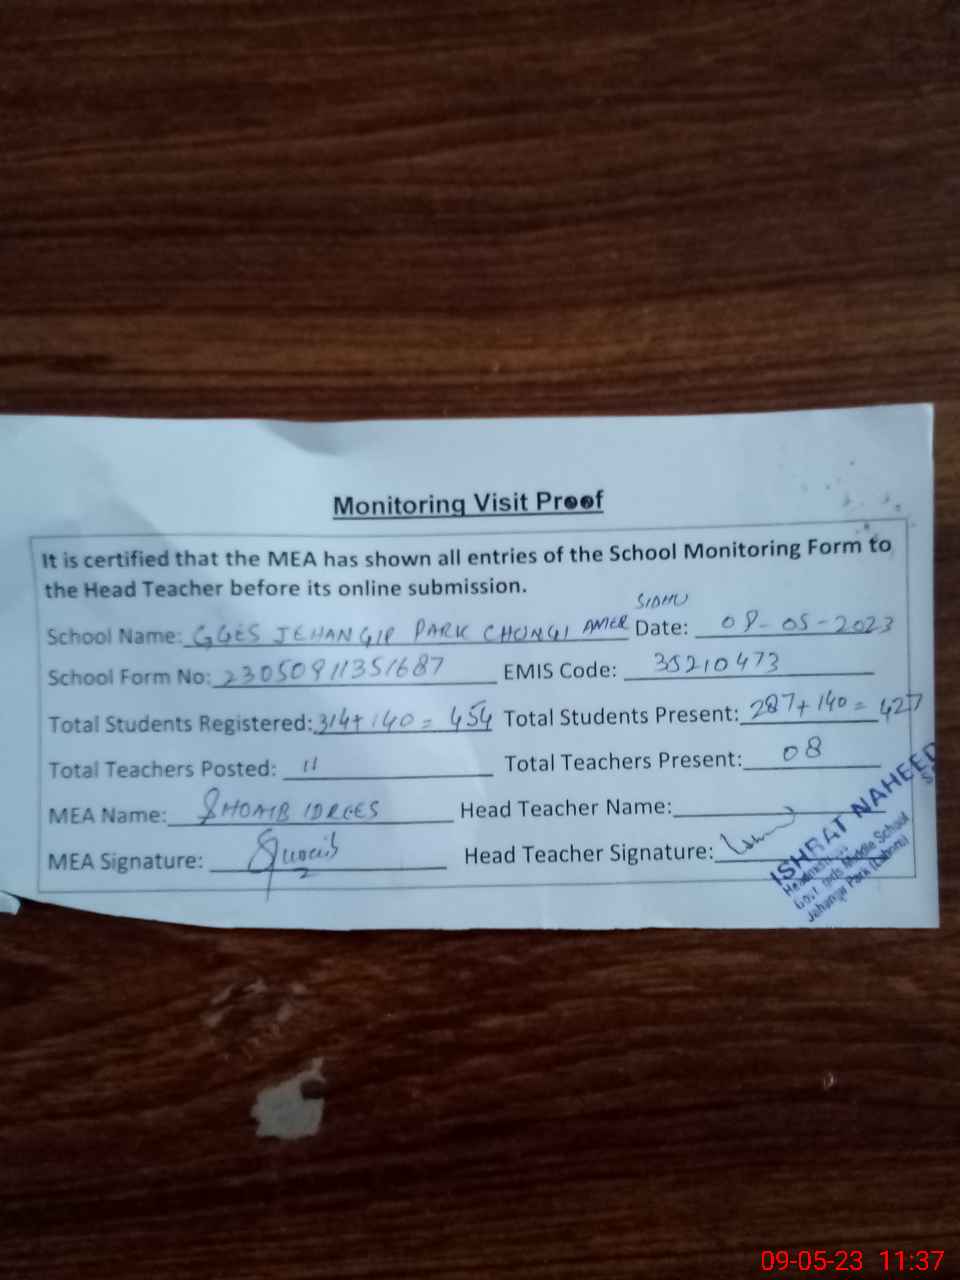 Monitoring Visit Proof
It is certified that the MEA has shown all entries of the School Monitoring Form to
the Head Teacher before its online submission.
SIDHU
School Name: GGES JEHANGIR PARK CHUNGI AMER Date: 08-05-2023
School Form No: 23050911351687 EMIS Code: 35210473
Total Students Registered: 314+140= 454 Total Students Present: 287+140= 427
Total Teachers Posted: 11 Total Teachers Present: 08
MEA Name: SHOAIB IDREES Head Teacher Name:
MEA Signature: Shoaib Head Teacher Signature:
ISHRAT NAHEED
Headmistress
Govt. Girls Middle School
Jehangir Park (Lahore)
09-05-23 11:37